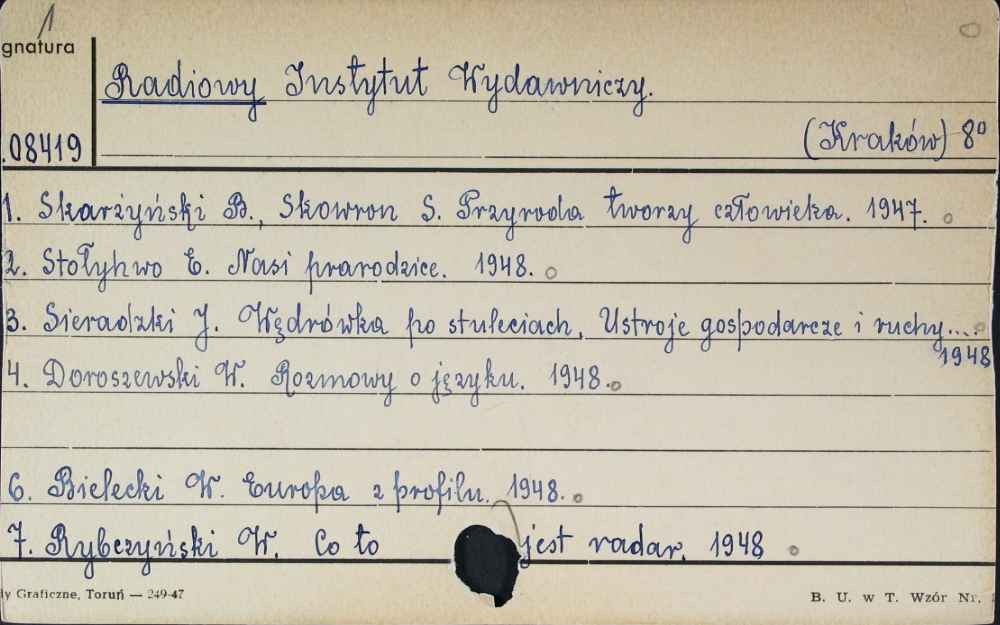 1
gnatura
Radiowy Instytut Wydawniczy.
.08419
(Kraków) 8º
1. Skarżyński B., Skowron S. Przyroda tworzy człowieka. 1947.
2. Stołyhwo E. Nasi prarodzice. 1948.
3. Sieradzki J. Wędrówka po stuleciach. Ustroje gospodarcze i ruchy...
1948
4. Doroszewski W. Rozmowy o języku. 1948.
6. Bielecki W. Europa z profilu. 1948.
7. Rybczyński W. Co to jest radar. 1948
dy Graficzne, Toruń — 249-47
B. U. w T. Wzór Nr.